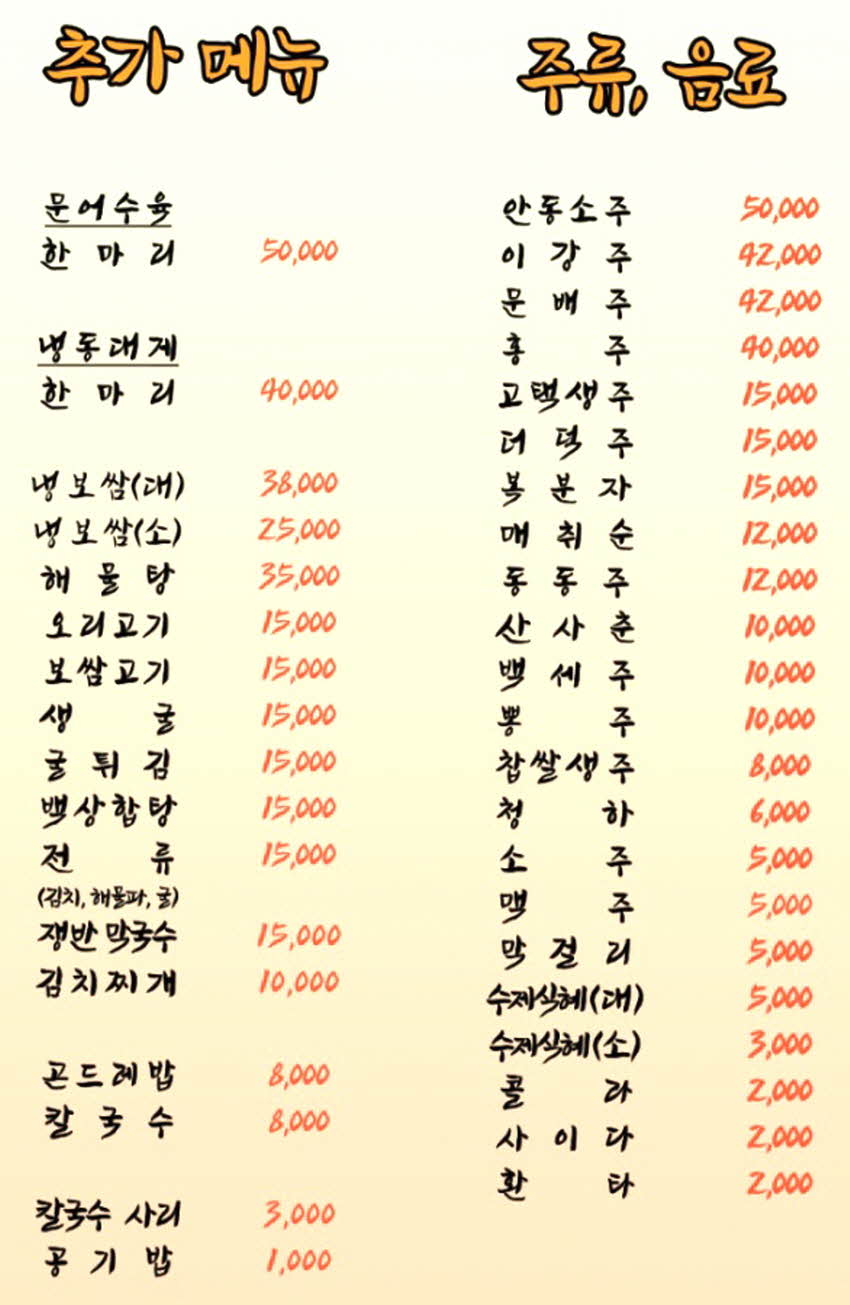 추가 메뉴
문어수육
한 마 리 50,000
냉동대게
한 마 리 40,000
냉보쌈(대) 38,000
냉보쌈(소) 25,000
해 물 탕 35,000
오리고기 15,000
보쌈고기 15,000
생 굴 15,000
굴 튀 김 15,000
백상합탕 15,000
전 류 15,000
(김치, 해물파, 굴)
쟁반 막국수 15,000
김치찌개 10,000
곤드레밥 8,000
칼 국 수 8,000
칼국수 사리 3,000
공 기 밥 1,000
주류, 음료
안동소주 50,000
이 강 주 42,000
문 배 주 42,000
홍 주 40,000
고택생주 15,000
더 덕 주 15,000
복 분 자 15,000
매 취 순 12,000
동 동 주 12,000
산 사 춘 10,000
백 세 주 10,000
뽕 주 10,000
찹쌀생주 8,000
청 하 6,000
소 주 5,000
맥 주 5,000
막 걸 리 5,000
수제식혜(대) 5,000
수제식혜(소) 3,000
콜 라 2,000
사 이 다 2,000
환 타 2,000